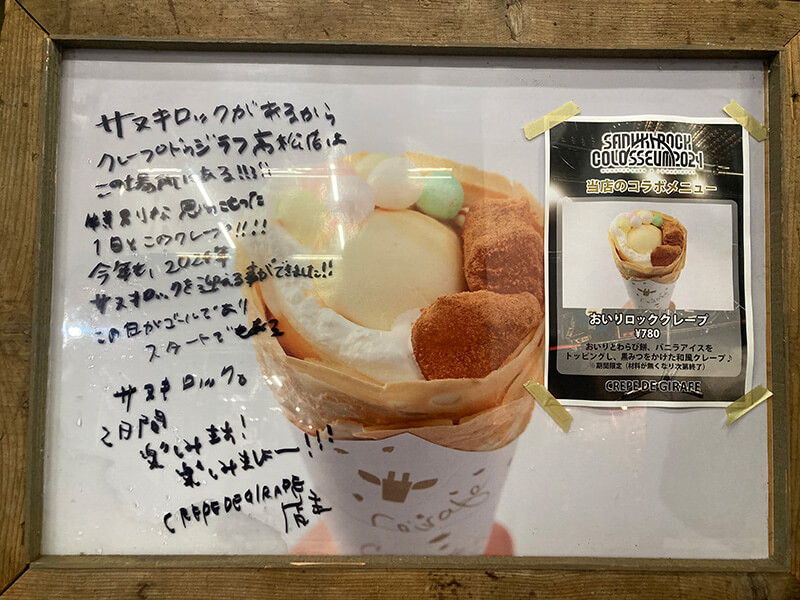 サヌキロックがあるから
クレープのドゥジラフ高松店は
この場所にある!!!!
特別な思いのこもった
1日とこのクレープ!!!!
今年も、2024年
サヌキロックを迎える事ができました!!
この日がゴールであり
スタートでもある
サヌキロック。
2日間
楽しみます!
楽しみましょー!!!
CREPE DE GIRAFE
店主
SANUKI ROCK
COLOSSEUM 2024
当店のコラボメニュー
おいりロッククレープ
¥780
おいりとわらび餅、バニラアイスを
トッピングし、黒みつをかけた和風クレープ♪
※期間限定（材料が無くなり次第終了）
CREPE DE GIRAFE
Girafe